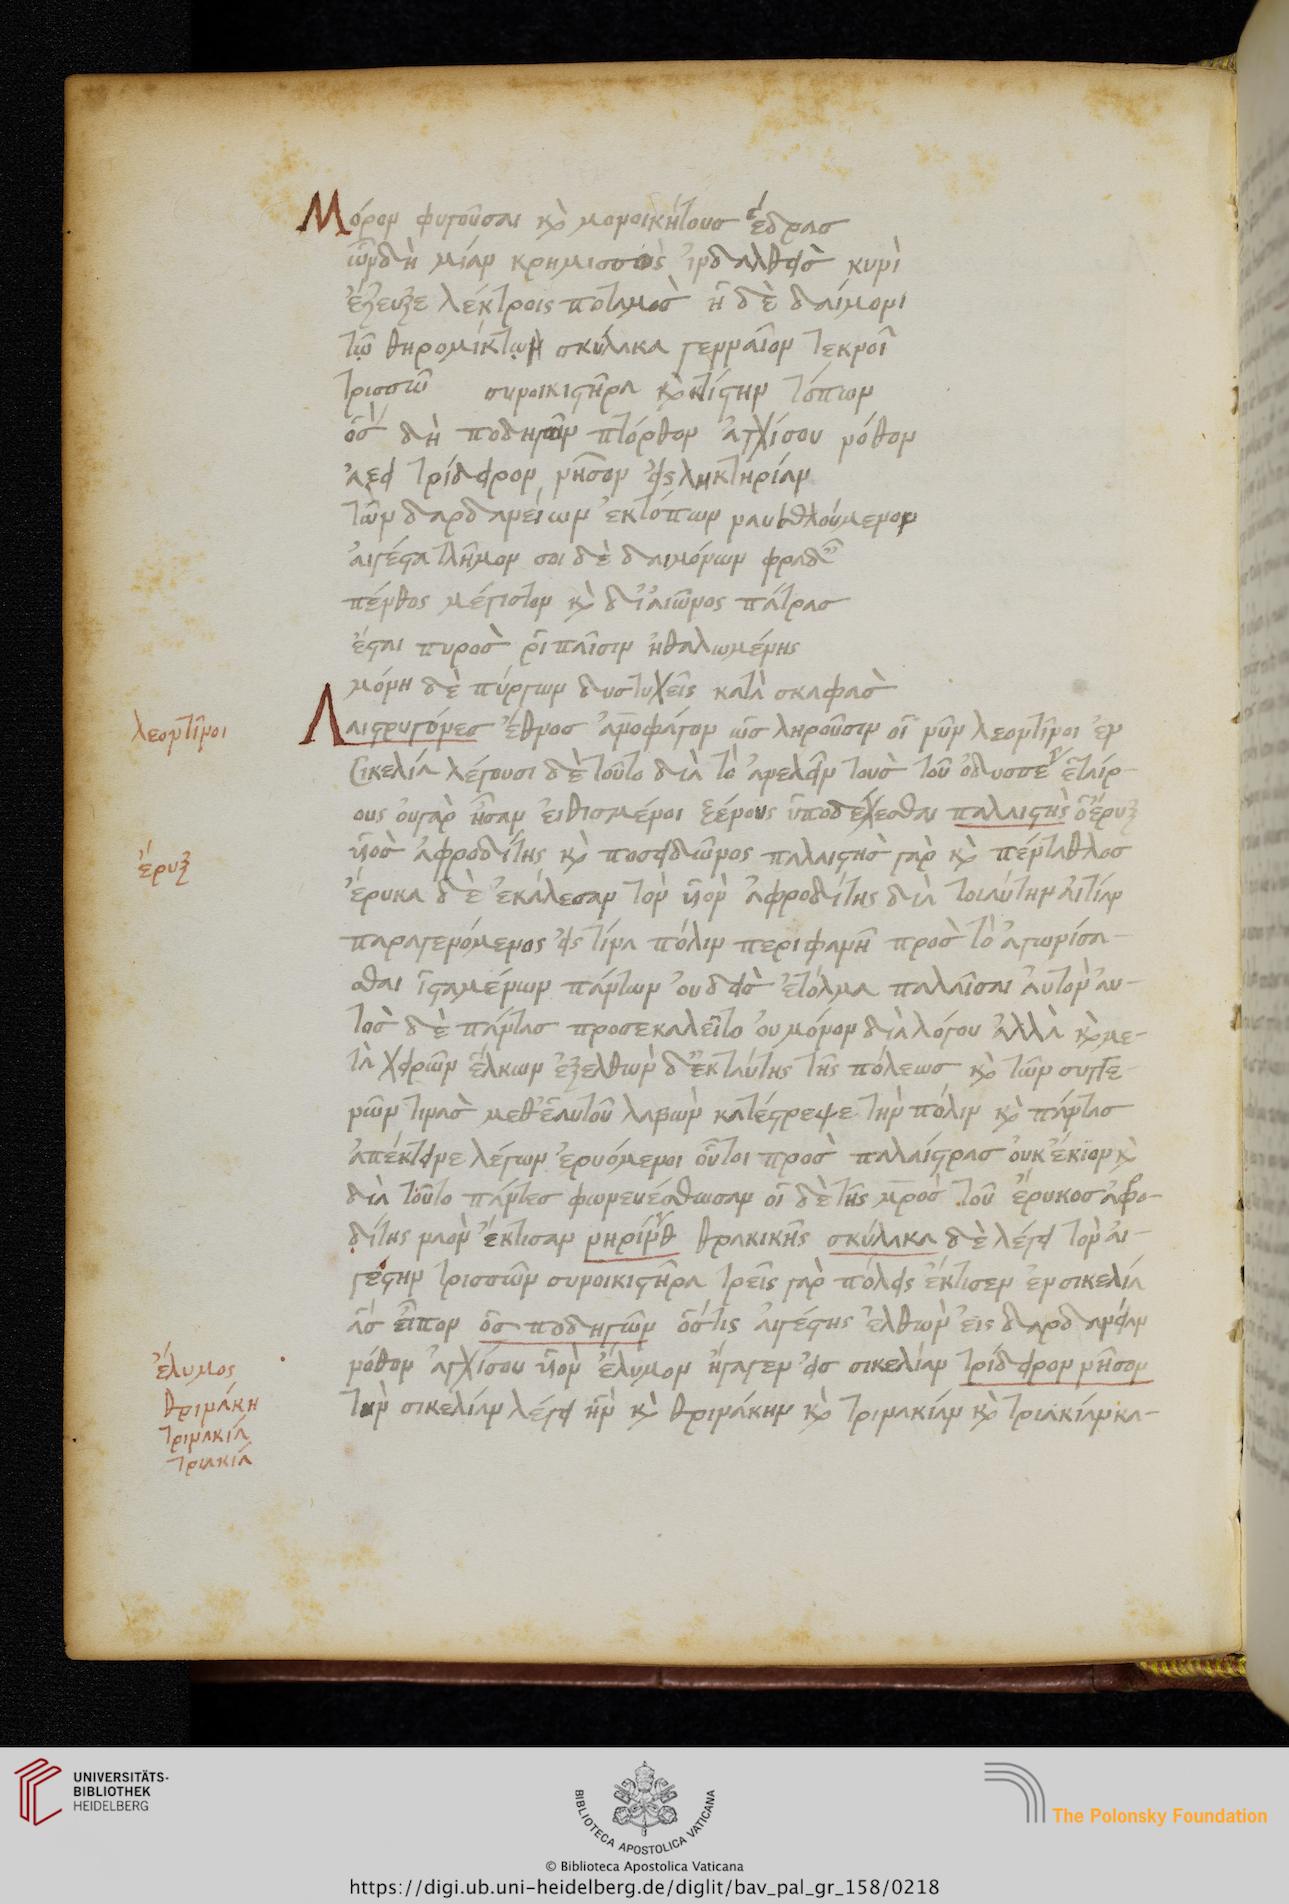 Μόνον φυγοῦσαι καὶ μονοικήτους ἕδρας
ὧν δὴ μίαν κρημισσὸς ἰνδαλθεὶς κυνὶ
ἔζευξε λέκτροις ποταμὸς ἡ δὲ δαίμονι
τῷ θηρομίκτων σκύλακα γενναῖον τεκνοῖ
τρισσῶν συνοικιστῆρα καὶ κτίστην τόπων
ὃς δὴ ποδηγῶν πτόρθον ἀγχίσου νόθον
ἄξει τρίδειρον νῆσον εἰς ληκτηρίαν
τῶν δαρδανείων ἐκτόπων ναυσθλούμενον
αἰγέστα τλῆμον σοι δὲ δαιμόνων φραδαῖς
πένθος μέγιστον καὶ δι' αἰῶνος πάτρας
ἔσται πυρὸς ῥιπαῖσιν ᾐθαλωμένης
μόνη δὲ πύργων δυστυχεῖς κατασκαφὰς
Λαιστρυγόνες ἔθνος ἀνθρωποφάγον ὡς ληροῦσιν οἱ νῦν λεοντῖνοι ἐν
Σικελίᾳ λέγουσι δὲ τοῦτο διὰ τὸ ἀνελεῖν τοὺς τοῦ ὀδυσσέως ἑταίρ-
ους οὐ γὰρ ἦσαν εἰθισμένοι ξένους ὑποδέχεσθαι παλαιστὴς ὁ ἔρυξ
υἱὸς ἀφροδίτης καὶ ποσειδῶνος παλαιστὴς γὰρ καὶ πένταθλος
ἔρυκα δὲ ἐκάλεσαν τὸν υἱὸν ἀφροδίτης διὰ τοιαύτην αἰτίαν
παραγενόμενος εἴς τινα πόλιν περιφανῆ πρὸς τὸ ἀγωνίσα-
σθαι ἱσταμένων πάντων οὐδεὶς ἐτόλμα παλαῖσαι αὐτὸν αὐ-
τὸς δὲ πάντας προσεκαλεῖτο οὐ μόνον διὰ λόγου ἀλλὰ καὶ με-
τὰ χειρῶν ἕλκων ἐξελθὼν δ' ἐκ ταύτης τῆς πόλεως καὶ τῶν συγγε-
νῶν τινὰς μεθ' ἑαυτοῦ λαβὼν κατέστρεψε τὴν πόλιν καὶ πάντας
ἀπέκτεινε λέγων ἐρυόμενοι οὗτοι πρὸς παλαίστρας οὐκ ἔκιον καὶ
διὰ τοῦτο πάντες φωνευέσθωσαν οἱ δὲ τῆς μητρὸς τοῦ ἔρυκος ἀφρο-
δίτης ναὸν ἔκτισαν ζηρινθίας θρακικῆς σκύλακα δὲ λέγει τὸν αἰ-
γέστην τρισσῶν συνοικιστῆρα τρεῖς γὰρ πόλεις ἔκτισεν ἐν σικελίᾳ
ἃς εἶπον ὃς ποδηγῶν ὅστις αἰγέστης ἐλθὼν εἰς δαρδανείαν
νόθον ἀγχίσου υἱὸν ἔλυμον ἤγαγεν εἰς σικελίαν τρίδειρον νῆσον
τὴν σικελίαν λέγει ἣν καὶ θρινάκην καὶ τρινακίαν καὶ τριακίαν κα-
λεοντῖνοι
ἔρυξ
ἔλυμος
θρινάκη
τρινακία
τριακία
UNIVERSITÄTS-
BIBLIOTHEK
HEIDELBERG
BIBLIOTECA APOSTOLICA VATICANA
The Polonsky Foundation
© Biblioteca Apostolica Vaticana
https://digi.ub.uni-heidelberg.de/diglit/bav_pal_gr_158/0218